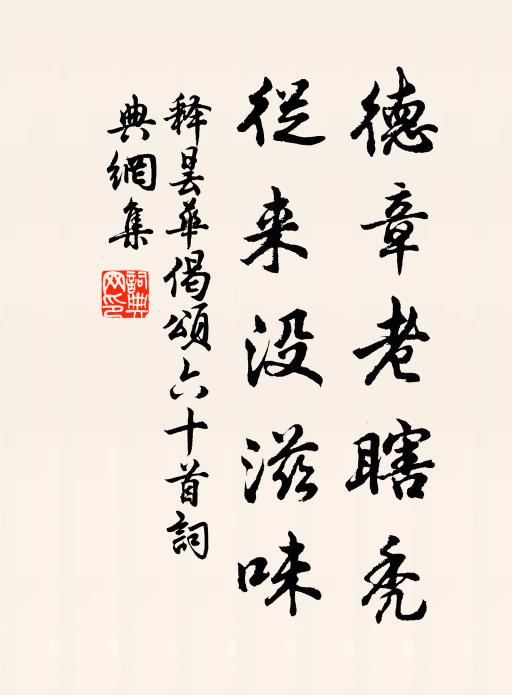 德章老瞎秃
從来没滋味
释昙華偈頌六十首詞
典網集
詞典网印